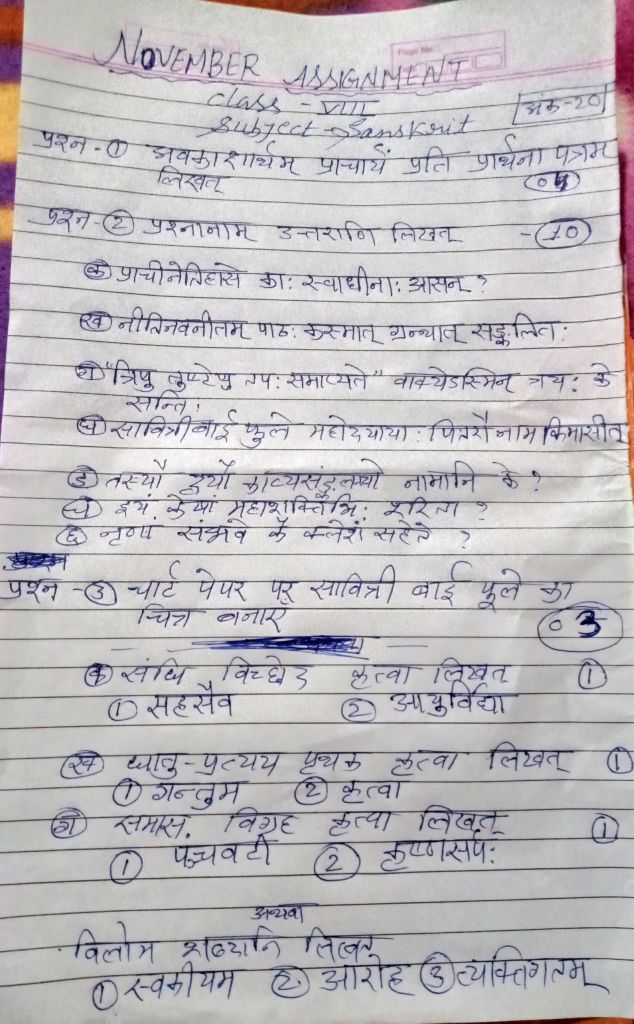 NOVEMBER ASSIGNMENT
Class - VIII
Subject - Sanskrit
अंक-20
प्रश्न - ① अवकाशार्थम् प्राचार्यं प्रति प्रार्थना पत्रम
लिखत् 04
प्रश्न - ② प्रश्नानाम् उत्तराणि लिखत् - 10
क प्राचीनेतिहासे काः स्वाधीनाः आसन् ?
ख नीतिनवनीतम् पाठः कस्मात् ग्रन्थात् सङ्कलितः
ग "त्रिषु तुष्टेषु तपः समाप्यते" वाक्येऽस्मिन् त्रयः के
सन्ति;
घ सावित्रीबाई फुले महोदयायाः पित्रौ नाम किमासीत्
ङ तस्यौ द्वयौ काव्यसंङ्कलनयो नामानि के ?
च इयं केषां महाशक्तिभिः पूरिता ?
छ नृणां संभवे कै क्लेशं सहेते ?
प्रश्न - ③ चार्ट पेपर पर सावित्री बाई फूले का
चित्र बनाए 03
क संधि विच्छेद कृत्वा लिखत् ①
① सहसैव ② आयुर्विद्या
ख धातु-प्रत्यय पृथक कृत्वा लिखत् ①
① गन्तुम ② कृत्वा
ग समास. विग्रह कृत्वा लिखत् ①
① पञ्चवटी ② कृष्णसर्पः
अथवा
विलोम शब्दानि लिखत्
① स्वकीयम ② आरोह ③ व्यक्तिगतम्